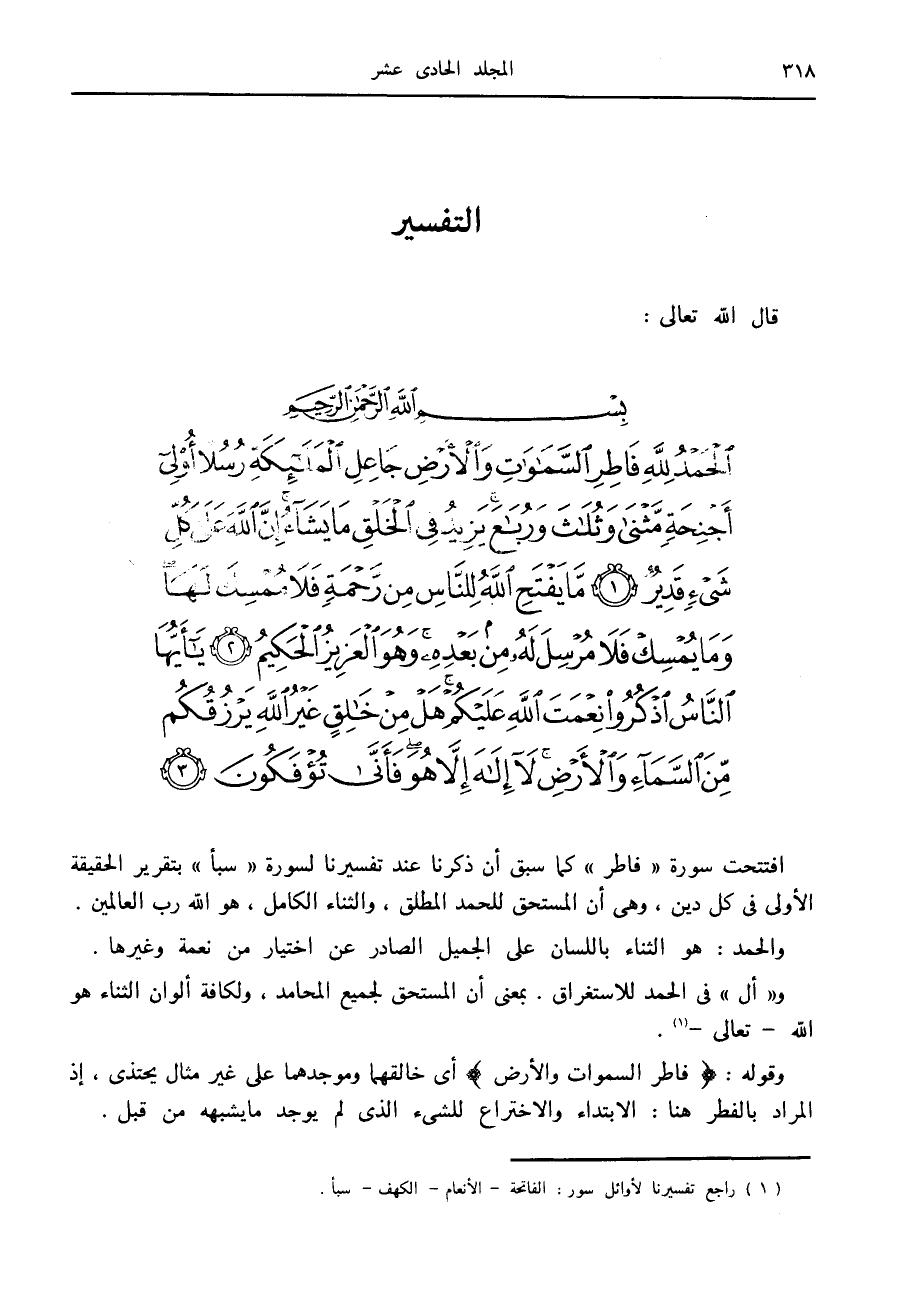 ٣١٨
المجلد الحادى عشر
التفسير
قال الله تعالى :
بِسْمِ ٱللَّهِ ٱلرَّحْمَٰنِ ٱلرَّحِيمِ
ٱلْحَمْدُ لِلَّهِ فَاطِرِ ٱلسَّمَٰوَٰتِ وَٱلْأَرْضِ جَاعِلِ ٱلْمَلَٰٓئِكَةِ رُسُلًا أُو۟لِىٓ
أَجْنِحَةٍ مَّثْنَىٰ وَثُلَٰثَ وَرُبَٰعَ ۚ يَزِيدُ فِى ٱلْخَلْقِ مَا يَشَآءُ ۚ إِنَّ ٱللَّهَ عَلَىٰ كُلِّ
شَىْءٍ قَدِيرٌ ﴿١﴾ مَّا يَفْتَحِ ٱللَّهُ لِلنَّاسِ مِن رَّحْمَةٍ فَلَا مُمْسِكَ لَهَا ۖ
وَمَا يُمْسِكْ فَلَا مُرْسِلَ لَهُۥ مِنۢ بَعْدِهِۦ ۚ وَهُوَ ٱلْعَزِيزُ ٱلْحَكِيمُ ﴿٢﴾ يَٰٓأَيُّهَا
ٱلنَّاسُ ٱذْكُرُوا۟ نِعْمَتَ ٱللَّهِ عَلَيْكُمْ ۚ هَلْ مِنْ خَٰلِقٍ غَيْرُ ٱللَّهِ يَرْزُقُكُم
مِّنَ ٱلسَّمَآءِ وَٱلْأَرْضِ ۚ لَآ إِلَٰهَ إِلَّا هُوَ ۖ فَأَنَّىٰ تُؤْفَكُونَ ﴿٣﴾
افتتحت سورة « فاطر » كما سبق أن ذكرنا عند تفسيرنا لسورة « سبأ » بتقرير الحقيقة
الأولى فى كل دين ، وهى أن المستحق للحمد المطلق ، والثناء الكامل ، هو الله رب العالمين .
والحمد : هو الثناء باللسان على الجميل الصادر عن اختيار من نعمة وغيرها .
و« أل » فى الحمد للاستغراق . بمعنى أن المستحق لجميع المحامد ، ولكافة ألوان الثناء هو
الله – تعالى –(١) .
وقوله : ﴿ فاطر السموات والأرض ﴾ أى خالقهما وموجدهما على غير مثال يحتذى ، إذ
المراد بالفطر هنا : الابتداء والاختراع للشىء الذى لم يوجد مايشبهه من قبل .
( ١ ) راجع تفسيرنا لأوائل سور : الفاتحة – الأنعام – الكهف – سبأ .